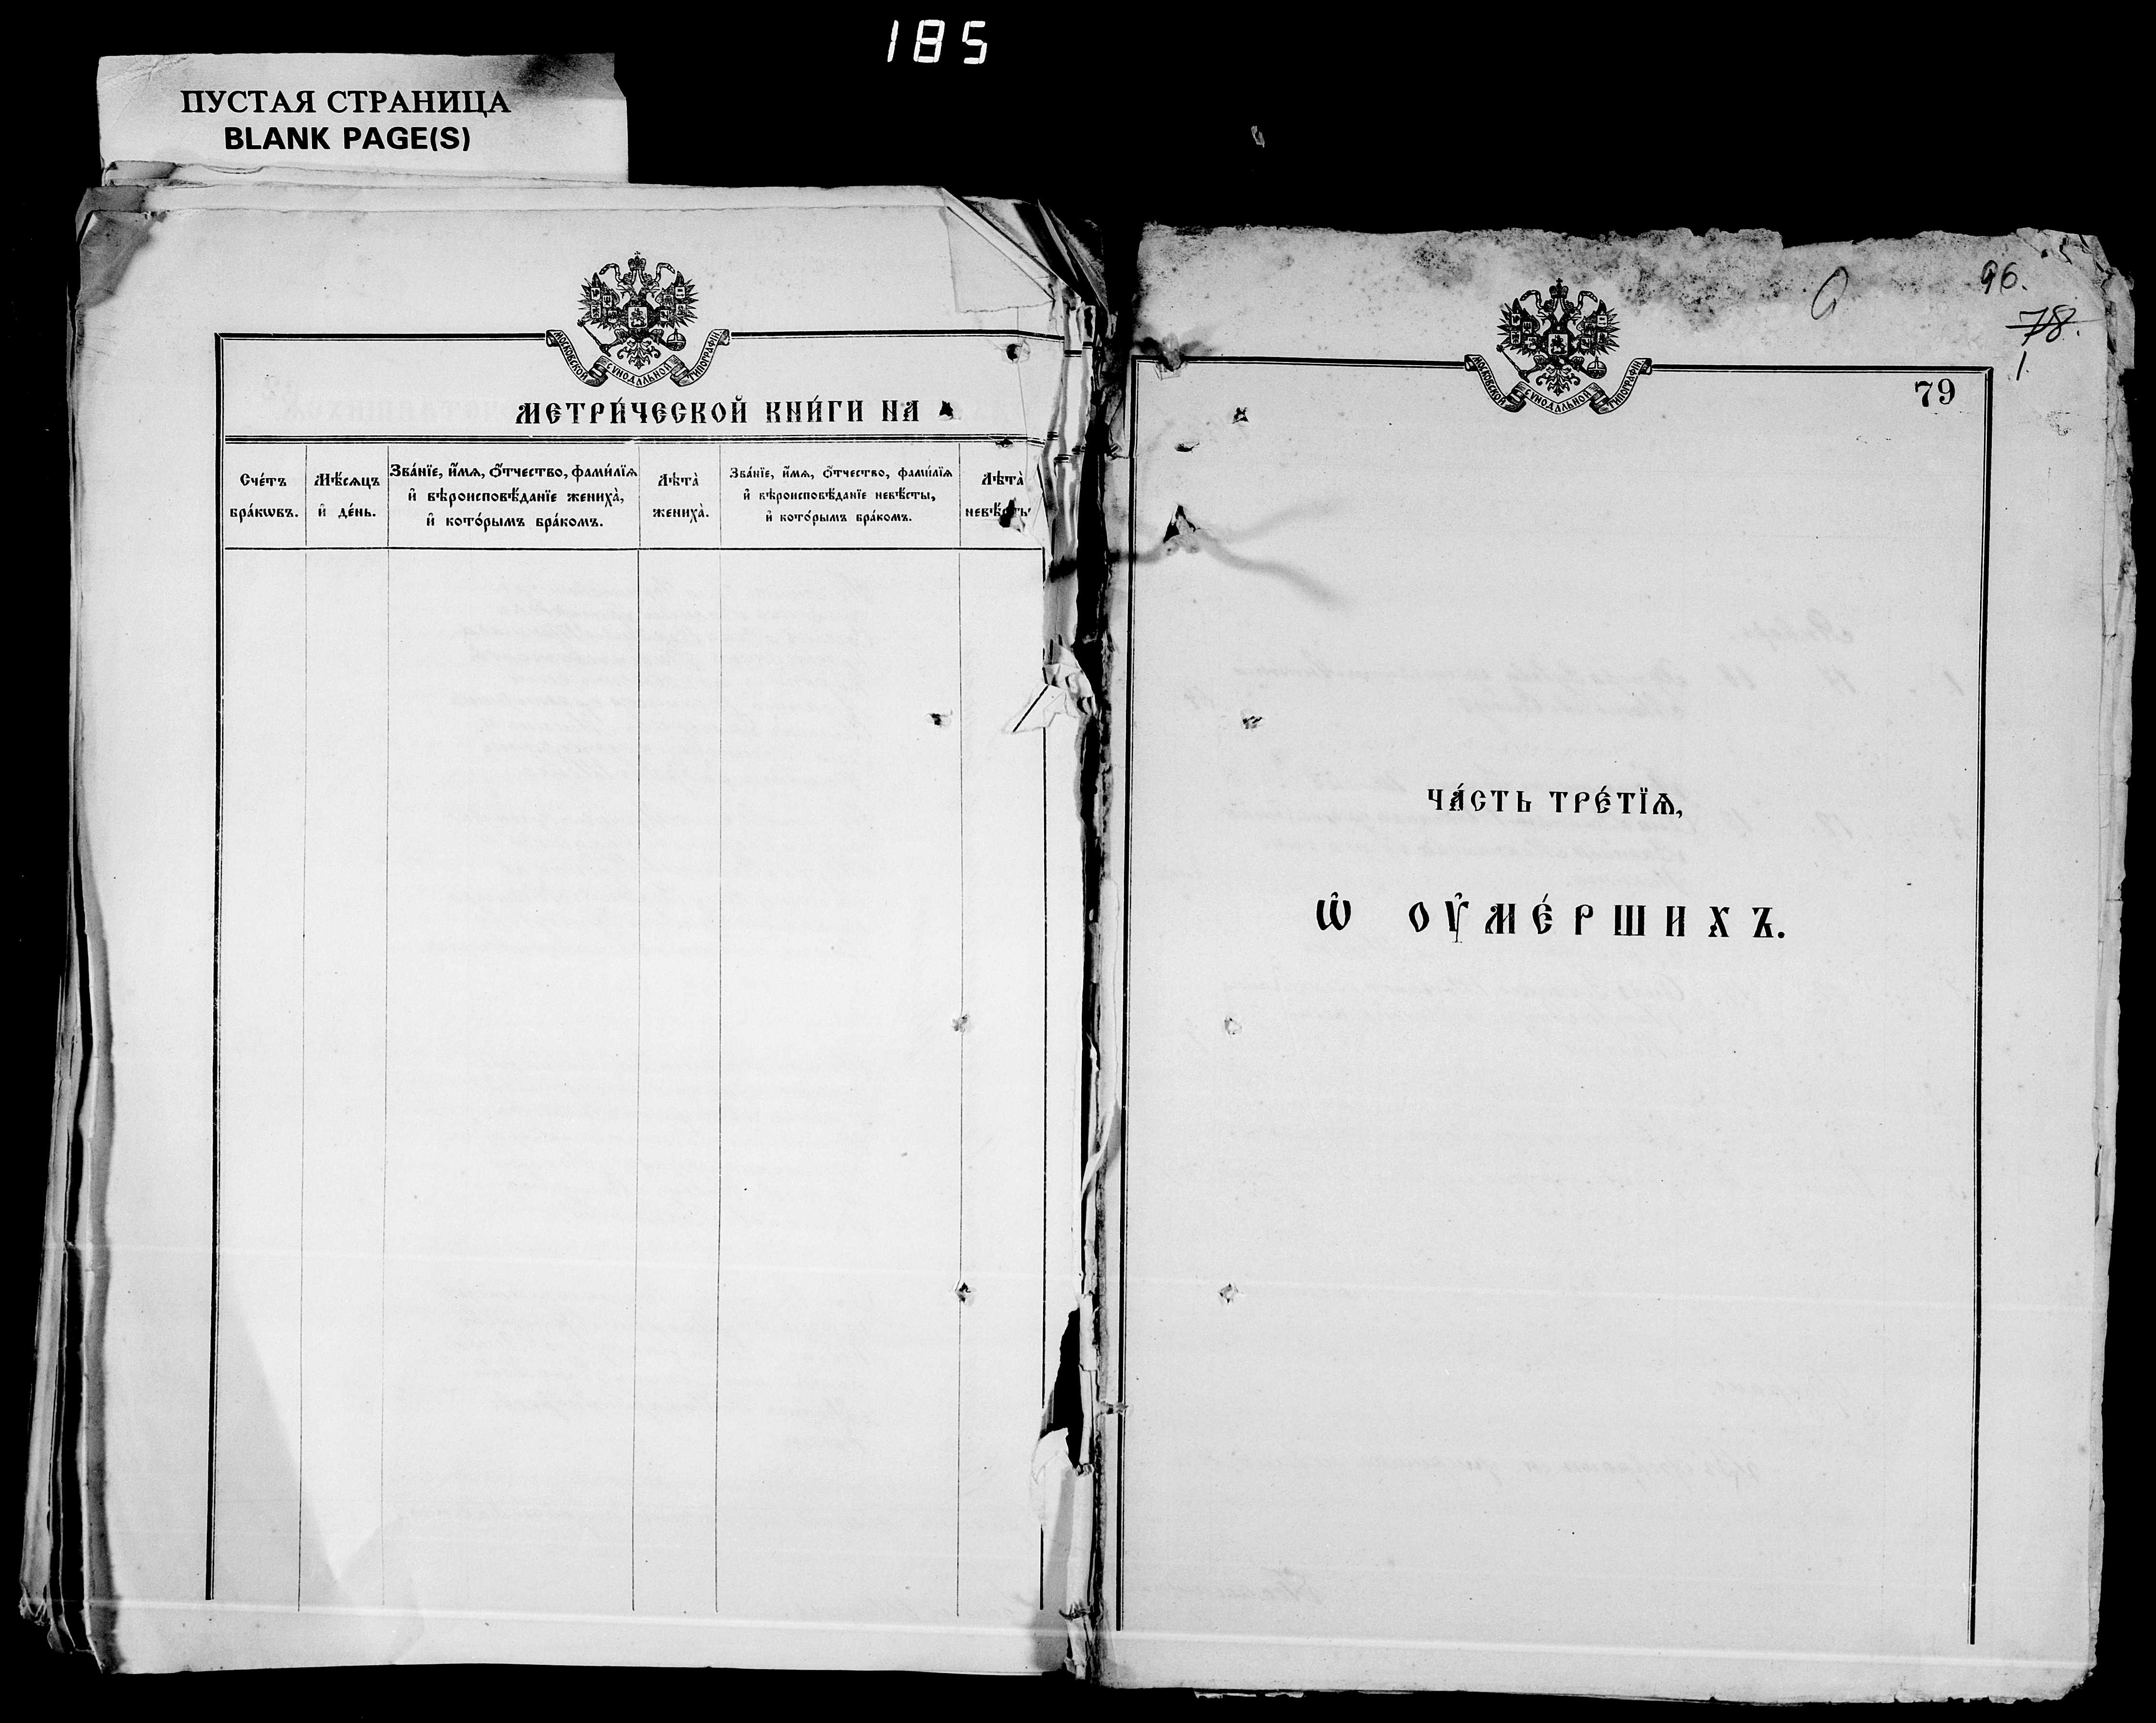 185
ПУСТАЯ СТРАНИЦА
BLANK PAGE(S)
МОСКОВСКОЙ СѴНОДАЛЬНОЙ ТИПОГРАФІИ.
МЕТРИ́ЧЕСКОЙ КНИ́ГИ НА
Сче́тъ бра́кѡвъ.
Мѣ́сяцъ и҆ де́нь.
Зва́нїе, и҆́мѧ, ѻ҆́тчество, фами́лїѧ
и҆ вѣроисповѣ́данїе жениха̀,
и҆ кото́рымъ бра́комъ.
Лѣта̀ жениха̀.
Зва́нїе, и҆́мѧ, ѻ҆́тчество, фами́лїѧ
и҆ вѣроисповѣ́данїе невѣ́сты,
и҆ кото́рымъ бра́комъ.
Лѣта̀ невѣ́сты
96.
78.
1.
МОСКОВСКОЙ СѴНОДАЛЬНОЙ ТИПОГРАФІИ.
79
ЧА́СТЬ ТРЕ́ТЇѦ,
Ѡ҆ ОУ҆МЕ́РШИХЪ.